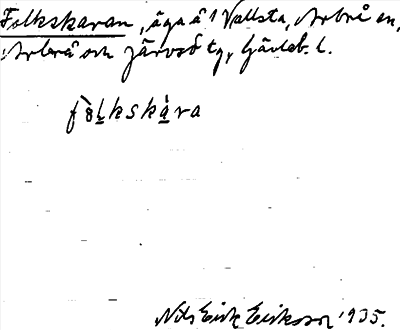 Folkskaran, äga å 1 Vallsta, Arbrå sn,
Arbrå och Järvsö tg, Gävleb. l.
fòlkskàra
Nils Eirk Eirksson 1935.